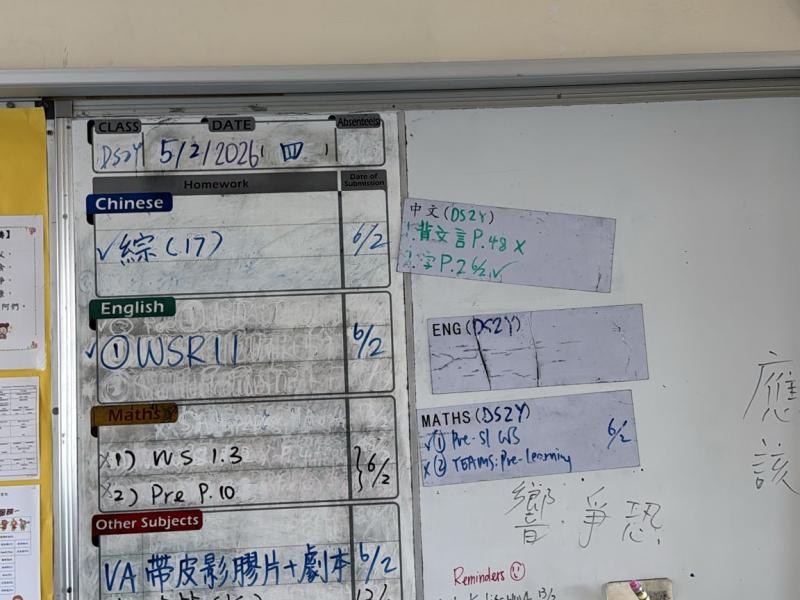 CLASS DATE Absentees
DS2Y 5/2/2026 四
Homework Date of Submission
Chinese
✓綜(17) 6/2
English
✓①WSR11 6/2
Maths
x1) WS 1.3
x2) Pre P.10 } 6/2
Other Subjects
VA 帶皮影膠片+劇本 6/2
中文(DS2Y)
1.背文言 P.48 x
2.字 P.2 6/2 ✓
ENG (DS2Y)
MATHS (DS2Y)
✓① Pre-S1 WS 6/2
x② TEAMS: Pre-Learning
應
該
響.爭 恐.
Reminders
13/2